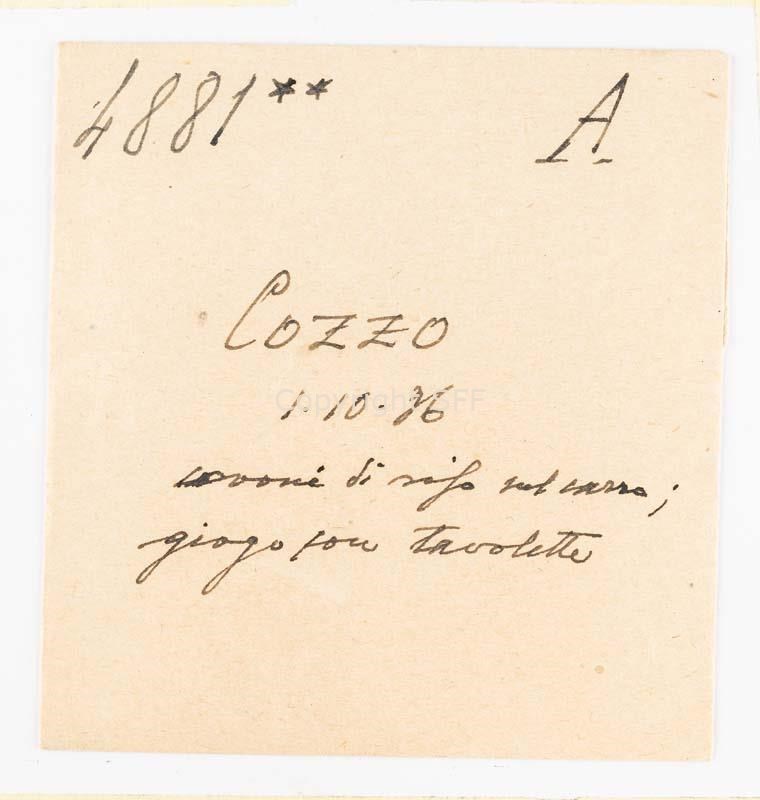 4881** A
Cozzo
1·10·36
Copyright SFF
covoni di riso sul carro;
giogo con tavolette